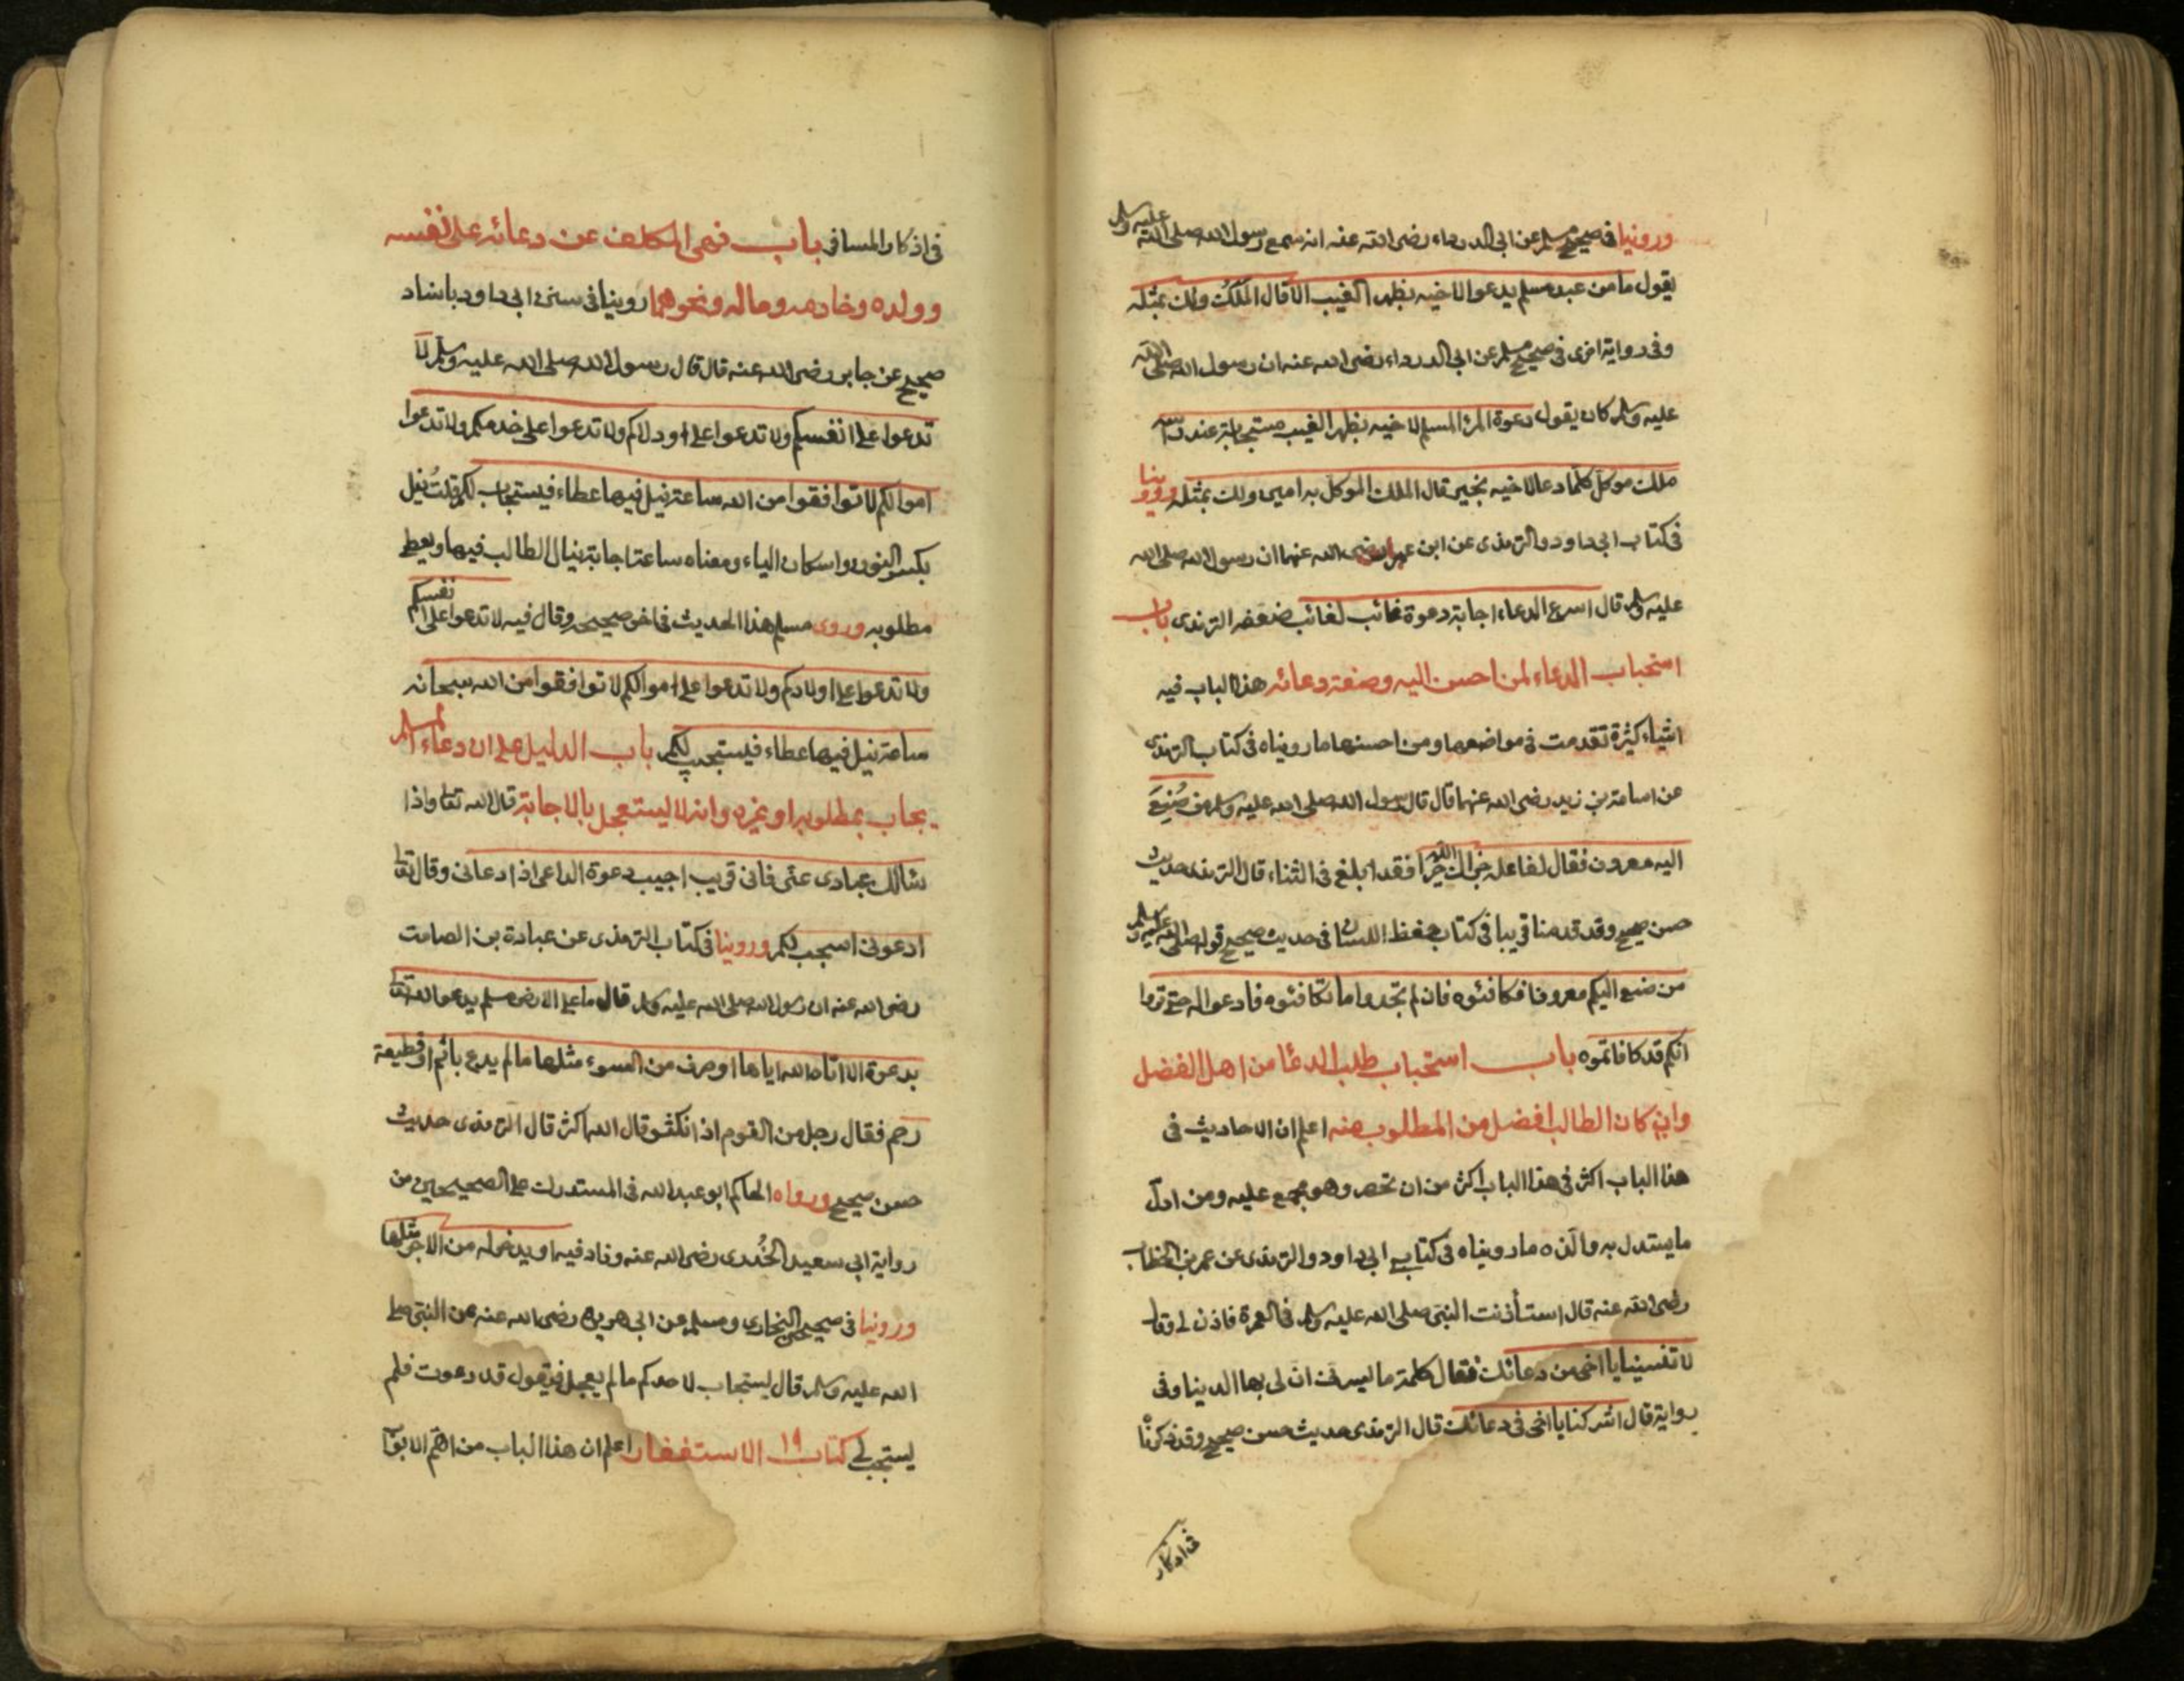 وروينا في صحيح مسلم عن ابي الدرداء رضى الله عنه انه سمع رسول الله صلى الله عليه وسلم
يقول ما من عبد مسلم يدعوا لاخيه بظهر الغيب الا قال الملك ولك بمثله
وفي رواية اخرى في صحيح مسلم عن ابي الدرداء رضى الله عنه ان رسول الله صلى الله
عليه وسلم كان يقول دعوة المرء المسلم لاخيه بظهر الغيب مستجابة عند راسه
ملك موكل كلما دعا لاخيه بخير قال الملك الموكل به امين ولك بمثله وروينا
في كتاب ابي داود والترمذى عن ابن عمر رضى الله عنهما ان رسول الله صلى الله
عليه وسلم قال اسرع الدعاء اجابة دعوة غائب لغائب ضعفه الترمذى باب
استحباب الدعاء لمن احسن اليه وصفة دعائه هذا الباب فيه
اشياء كثيرة تقدمت في مواضعها ومن احسنها ما رويناه في كتاب الترمذى
عن اسامة بن زيد رضى الله عنهما قال قال رسول الله صلى الله عليه وسلم من صُنِعَ
اليه معروف فقال لفاعله جزاك الله خيرا فقد ابلغ في الثناء قال الترمذى حديث
حسن صحيح وقد قدمنا قريبا في كتاب حفظ اللسان في حديث صحيح قوله صلى الله عليه وسلم
من صنع اليكم معروفا فكافئوه فان لم تجدوا ما تكافئوه فادعوا له حتى تروا
انكم قد كافاتموه باب استحباب طلب الدعا من اهل الفضل
وان كان الطالب افضل من المطلوب منه اعلم ان الاحاديث في
هذا الباب اكثر في هذا الباب اكثر من ان تحصر وهو مجمع عليه ومن ادلّ
ما يستدل به ما رويناه في كتاب ابي داود والترمذى عن عمر بن الخطاب
رضى الله عنه قال استأذنت النبى صلى الله عليه وسلم في العمرة فاذن لى وقال
لا تنسينا يا اخى من دعائك فقال كلمة ما يسرنى ان لى بها الدينا وفى
رواية قال اشركنا يا اخى في دعائك قال الترمذى حديث حسن صحيح وقد ذكرنا
في اذكار
في اذكار المسافر باب نهى المكلف عن دعائه على نفسه
وولده وخادمه وماله ونحوهما روينا في سنن ابي داود باسناد
صحيح عن جابر رضى الله عنه قال قال رسول الله صلى الله عليه وسلم لا
تدعوا على انفسكم ولا تدعوا على اودلاكم ولا تدعوا على خدمكم ولا تدعوا
اموالكم لا توافقوا من الله ساعة نيل فيها عطاء فيستجاب لكم قلت نيل
بكسر النون واسكان الياء ومعناه ساعة اجابة ينال الطالب فيها ويعطى
مطلوبه وروى مسلم هذا الحديث في اخر صحيحه وقال فيه لا تدعوا على انفسكم
ولا تدعوا على اولادكم ولا تدعوا على اموالكم لا توافقوا من الله سبحانه
ساعة نيل فيها عطاء فيستجيب لكم باب الدليل على ان دعاء المسلم
يجاب بمطلوبه او غيره وانه لا يستعجل بالاجابة قال الله تعالى واذا
سالك عبادى عنّى فانى قريب اجيب دعوة الداعى اذا دعانى وقال تعالى
ادعونى استجب لكم وروينا في كتاب الترمذى عن عبادة بن الصامت
رضى الله عنه ان رسول الله صلى الله عليه وسلم قال ما على الارض مسلم يدعوا الله تعالى
بدعوة الا اتاه الله اياها او صرف من السوء مثلها ما لم يدع باثم او قطيعة
رحم فقال رجل من القوم اذا نكثر قال الله اكثر قال الترمذى حديث
حسن صحيح ورواه الحاكم ابو عبد الله في المستدرك على الصحيحين من
رواية ابي سعيد الخُدرى رضى الله عنه وزاد فيه او يدخر له من الاجر مثلها
وروينا في صحيحى البخارى ومسلم عن ابي هريرة رضى الله عنه عن النبى صلى
الله عليه وسلم قال يستجاب لاحدكم ما لم يعجل فيقول قد دعوت فلم
يستجب لى كتاب ١٩ الاستغفار اعلم ان هذا الباب من اهمّ الابواب